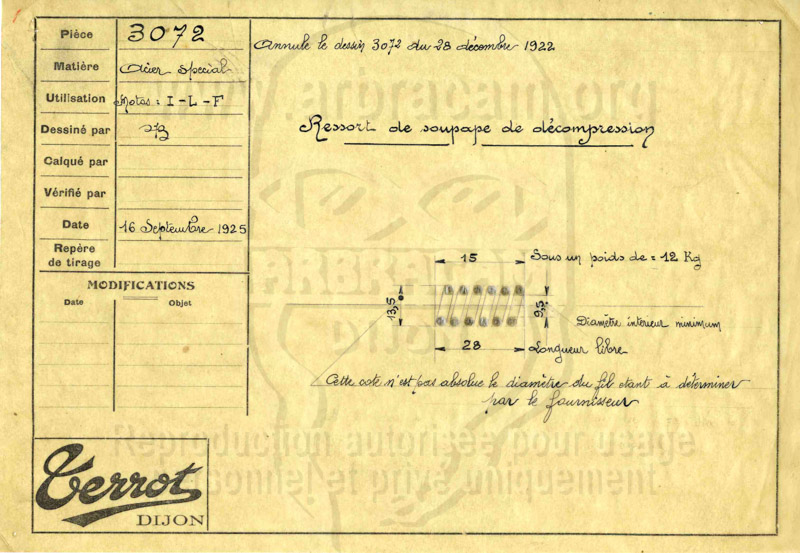 Pièce 3072
Annule le dessin 3072 du 28 décembre 1922
Matière Acier Spécial
www.arbracam.org
Utilisation Motos : I - L - F
Dessiné par
Ressort de soupape de décompression
Calqué par
Vérifié par
Date 16 Septembre 1925
Repère
de tirage
MODIFICATIONS
Date Objet
15 Sous un poids de = 12 Kg
13,5
9,5
Diamètre intérieur minimum
28 Longueur libre
Cette cote n'est pas absolue le diamètre du fil étant à déterminer
par le fournisseur
Reproduction autorisée pour usage
personnel et privé uniquement
Terrot
DIJON